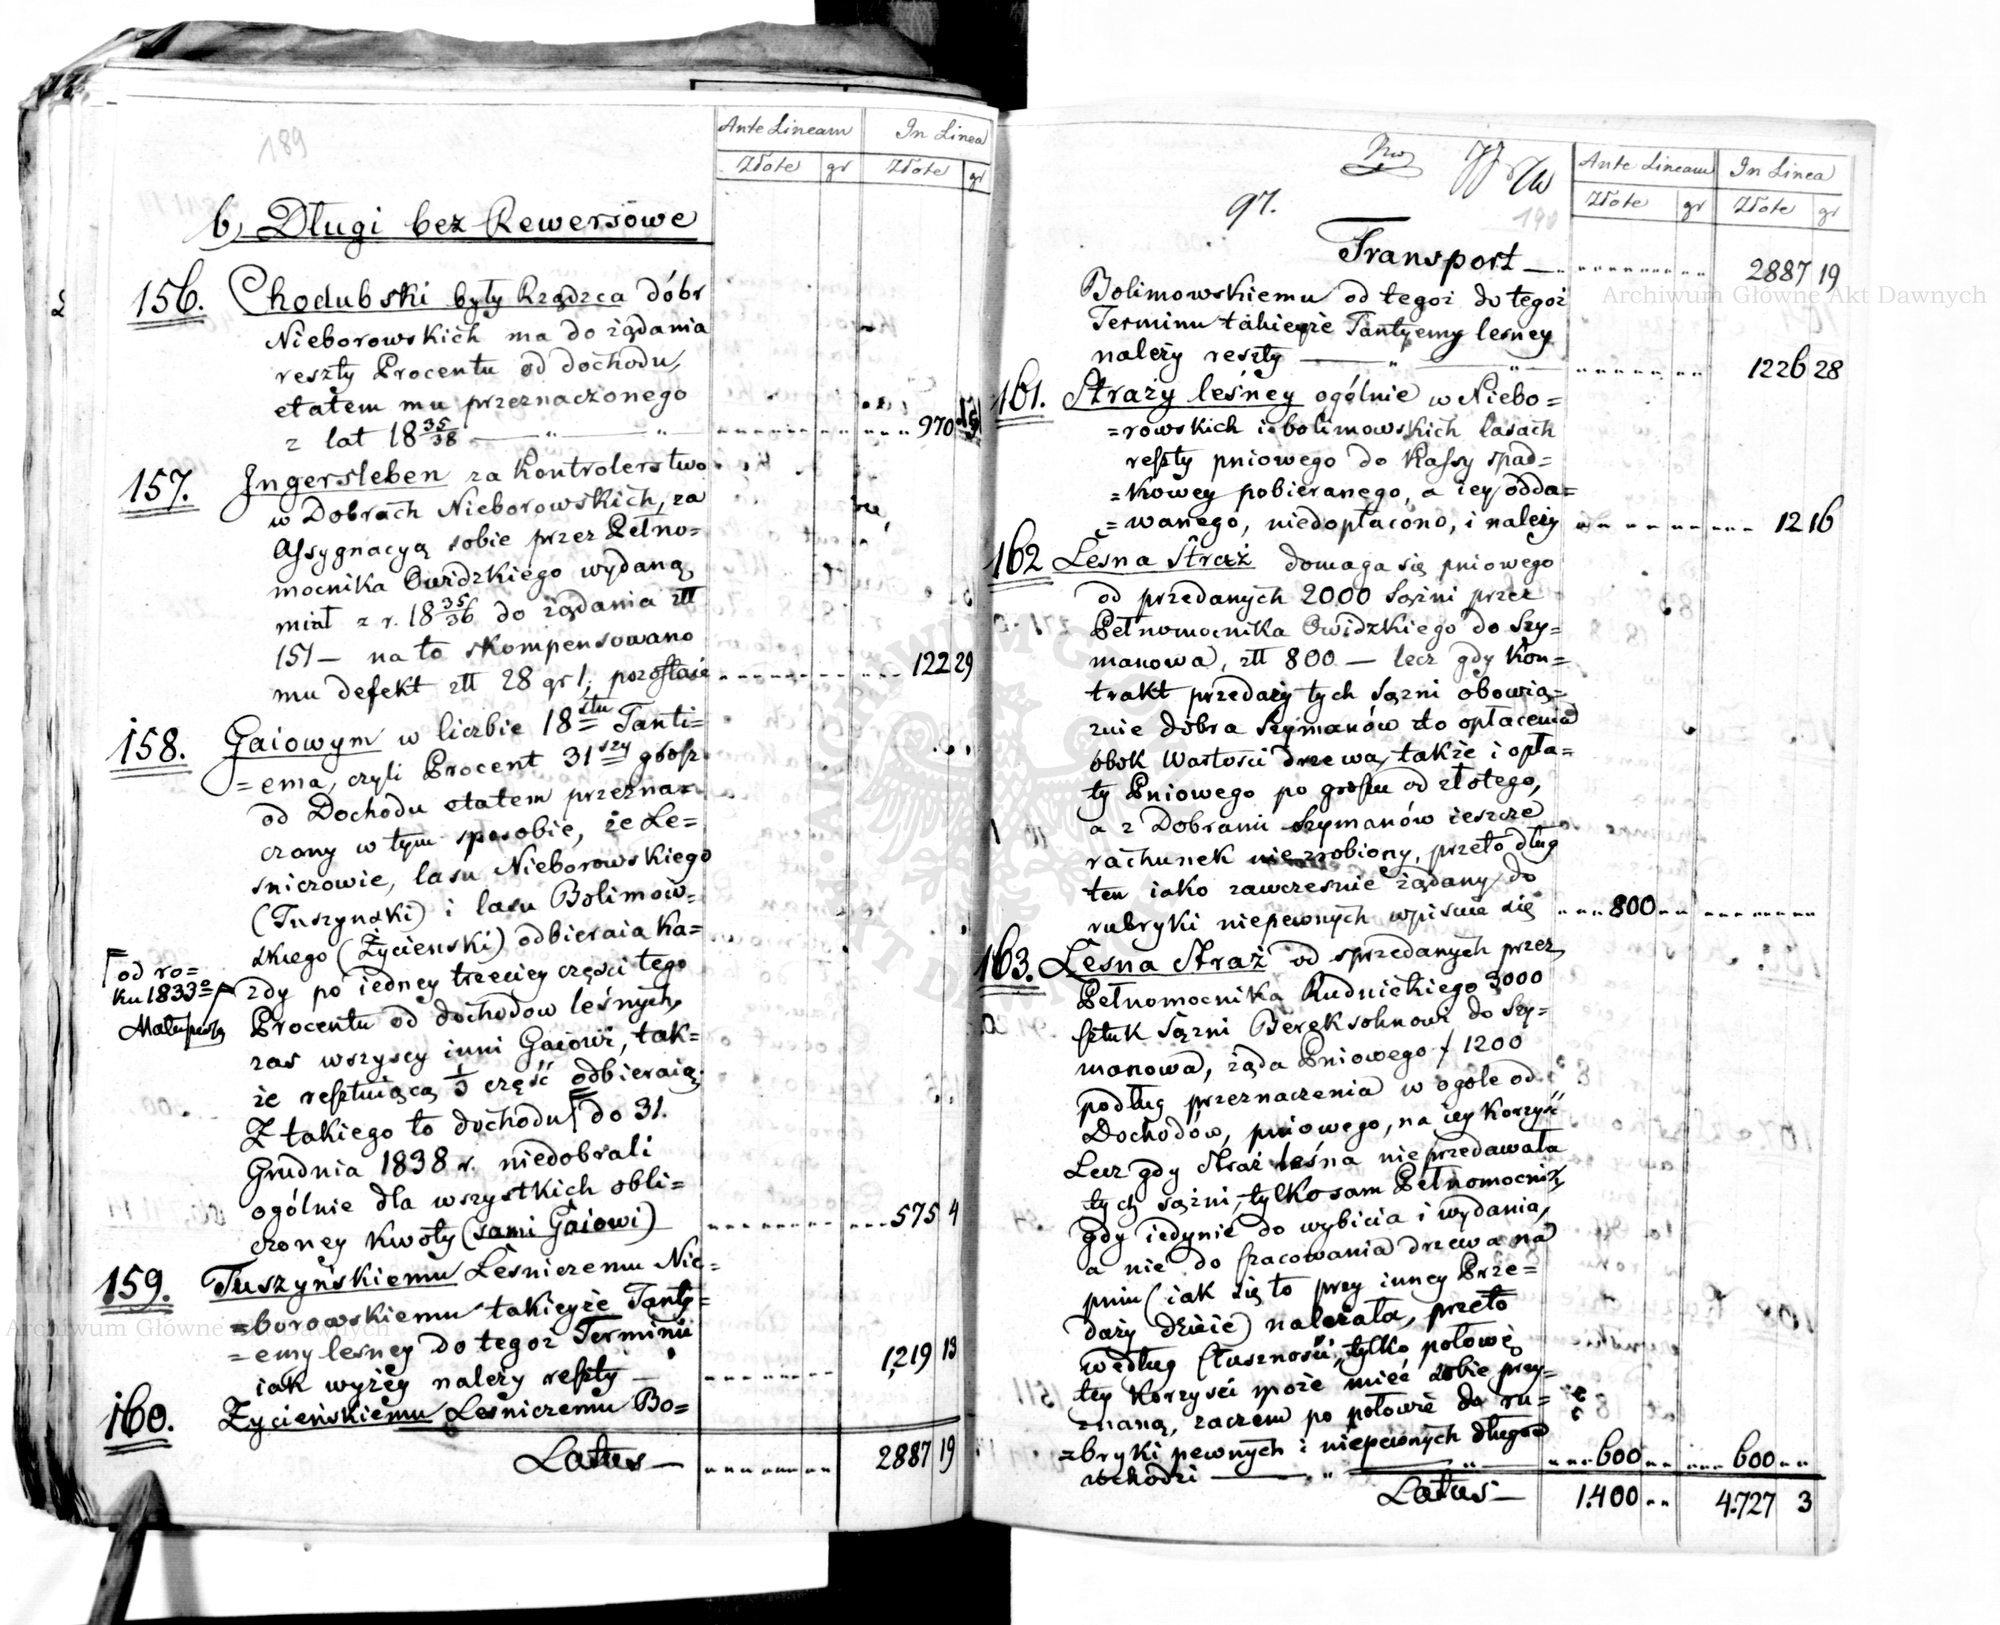 189
Ante Lineam In Linea
Złote gr Złote gr
b, Długi bez Rewersowe
156. Chodubski były Rządzca dóbr
Nieborowskich ma do żądania
reszty Procentu od dochodu,
etatem mu przeznaczonego
z lat 18 35/38 970
157. Ingersleben za Kontrolerstwo
w Dobrach Nieborowskich, za
Assygnacyą sobie przez Pełno=
mocnika Owidzkiego wydaną
miał z r. 18 35/36 do żądania zł
151 — na to skompensowano
mu defekt zł 28 gr 1, pozostaie 122 29
158. Gaiowym w liczbie 18stu Tanti=
=ema, czyli Procent 31szy grosz
od Dochodu etatem przezna=
czony w tym sposobie, że Le=
śniczowie, lasu Nieborowskiego
(Tuszynski) i lasu Bolimow=
skiego (Życienski) odbieraia Ka=
żdy po iedney trzeciey części tego
Procentu od dochodow leśnych,
zas wszyscy inni Gaiowi, tak=
że resztuiącą 1/3 część odbieraią.
Z takiego to dochodu do 31.
Grudnia 1838 r. niedobrali
ogólnie dla wszystkich obli=
czoney Kwoty (sami Gaiowi) 575 4
od ro=
ku 1833o
159. Tuszyńskiemu Leśniczemu Nie=
=borowskiemu takieyże Tanty=
=emy lesney do tegoz Terminu
iak wyżey należy reszty — 1,219 13
160. Życieńskiemu Leśniczemu Bo=
Latus — 2887 19
97.
190
Ante Lineam In Linea
Złote gr Złote gr
Transport — 2887 19
Bolimowskiemu od tegoż do tegoż
Terminu takieyże Tantyemy lesney
należy reszty — 1226 28
161. Straży leśney ogólnie w Niebo=
=rowskich i bolimowskich lasach
reszty pniowego do Kassy spad=
=kowey pobieranego, a iey odda=
=wanego, niedopłacono, i należy 12 16
162 Leśna Straż domaga się pniowego
od przedanych 2000 Sążni przez
Pełnomocnika Owidzkiego do Szy=
manowa, zł 800 — lecz gdy Kon=
trakt przedaży tych sążni obowią=
zuie dobra Szymanów do opłacenia
obok Wartości drzewa, także i opła=
ty Pniowego po groszu od złotego,
a z Dobrami Szymanów ieszcze
rachunek nie zrobiony, przeto dług
ten iako zawczesnie żądany do
rubryki niepewnych wpisuie się 800
163. Leśna Straż od sprzedanych przez
Pełnomocnika Rudnickiego 3000
sztuk Sążni Bereksohnowi do Szy=
manowa, żąda Pniowego f 1200
podług przeznaczenia w ogóle od
Dochodów, pniowego, na iey korzyść
Lecz gdy Straż leśna nieprzedawała
tych sążni, tylko sam Pełnomocnik,
gdy iedynie do wybicia i wydania,
a nie do szacowania drzewa na
pniu (iak się to przy inney Prze=
daży dzieie) należała, przeto
według słuszności, tylko połowę
tey Korzysci może mieć sobie przy=
znaną, zaczem po połowie do ru=
=bryki pewnych i niepewnych długów
wchodzi — 600 600
Latus — 1.400 4.727 3
Archiwum Główne Akt Dawnych
Archiwum Główne Akt Dawnych